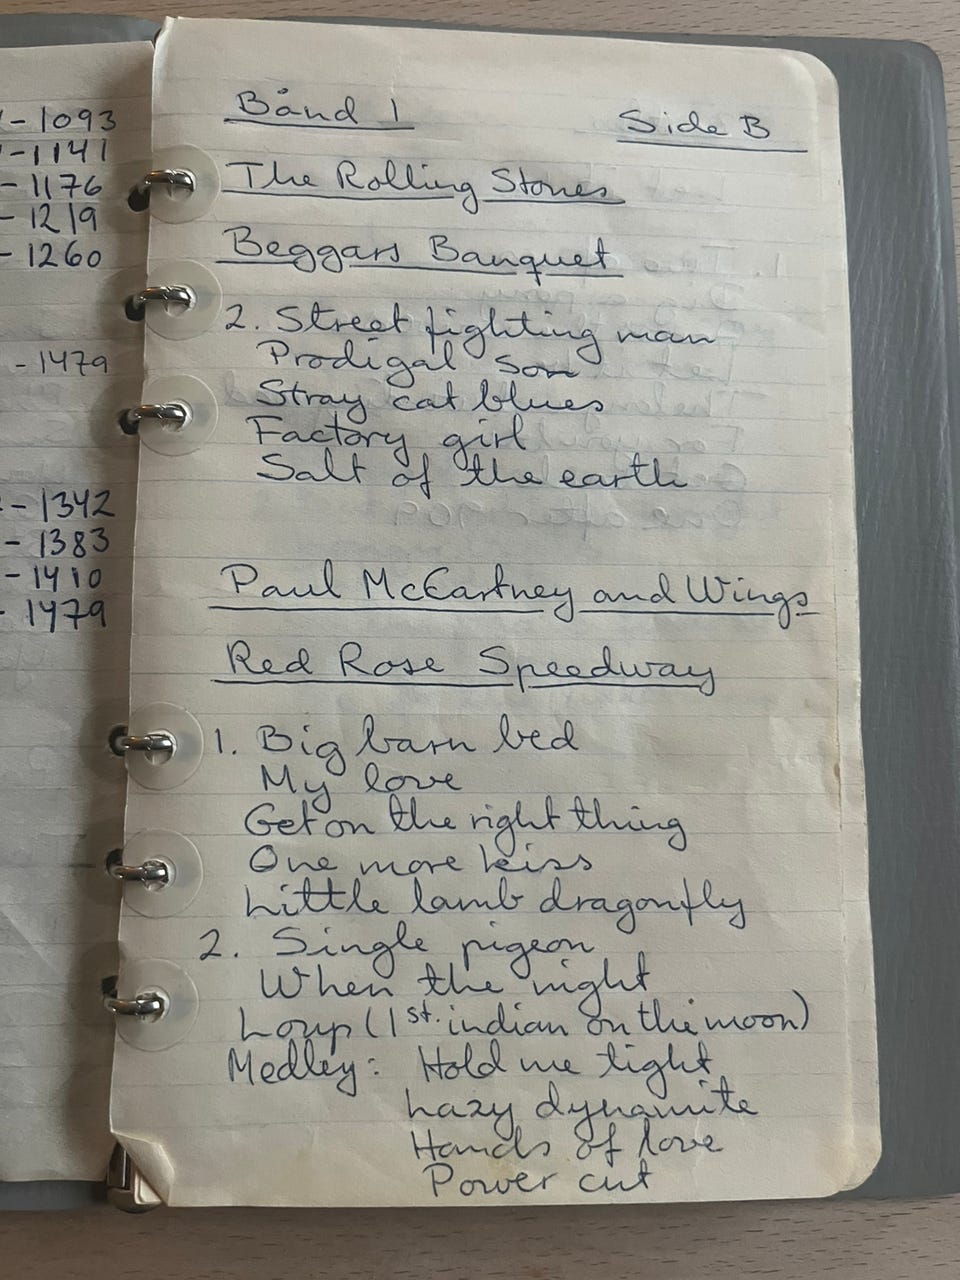 - 1093
- 1141
- 1176
- 1219
- 1260
- 1479
- 1342
- 1383
- 1410
- 1479
Bånd 1 Side B
The Rolling Stones
Beggars Banquet
2. Street fighting man
Prodigal Son
Stray cat blues
Factory girl
Salt of the earth
Paul McCartney and Wings
Red Rose Speedway
1. Big barn bed
My love
Get on the right thing
One more kiss
Little lamb dragonfly
2. Single pigeon
When the night
Loup (1st. indian on the moon)
Medley: Hold me tight
Lazy dynamite
Hands of love
Power cut